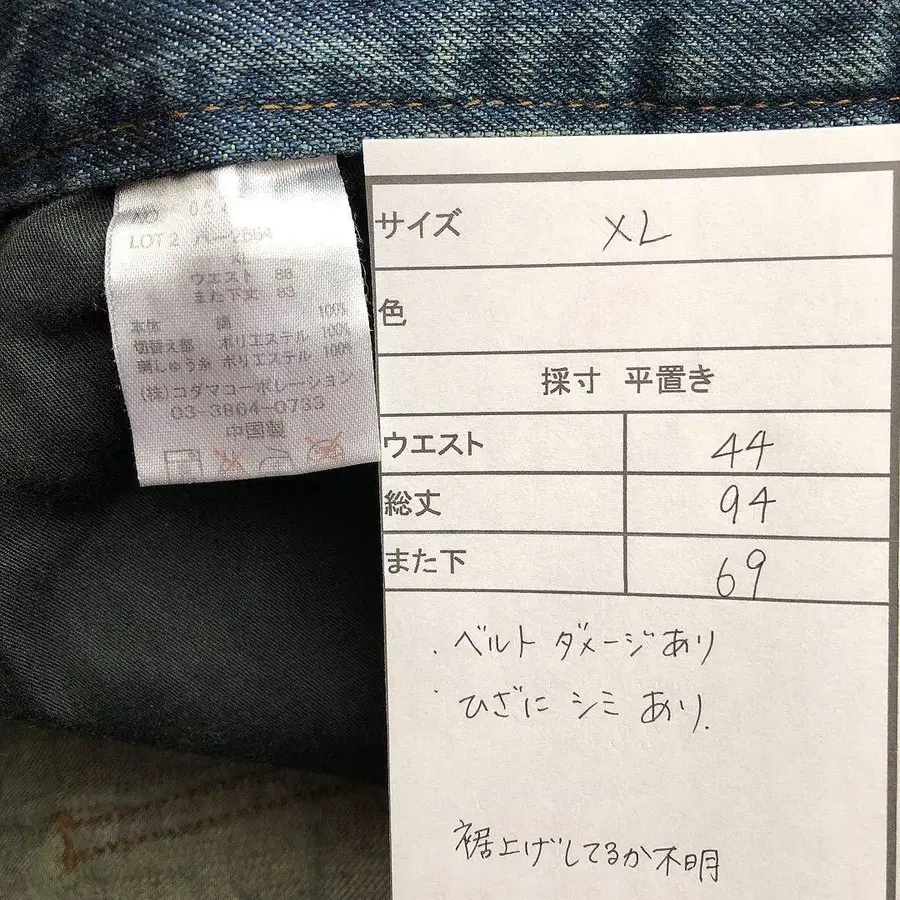 LOT 2
XL
ウエスト 88
また下丈 83
本体 綿 100%
切替え部 ポリエステル 100%
刺しゅう糸 ポリエステル 100%
(株)コダマコーポレーション
03-3864-0733
中国製
サイズ XL
色
採寸 平置き
ウエスト 44
総丈 94
また下 69
・ベルト ダメージあり
・ひざに シミ あり.
裾上げしてるか不明